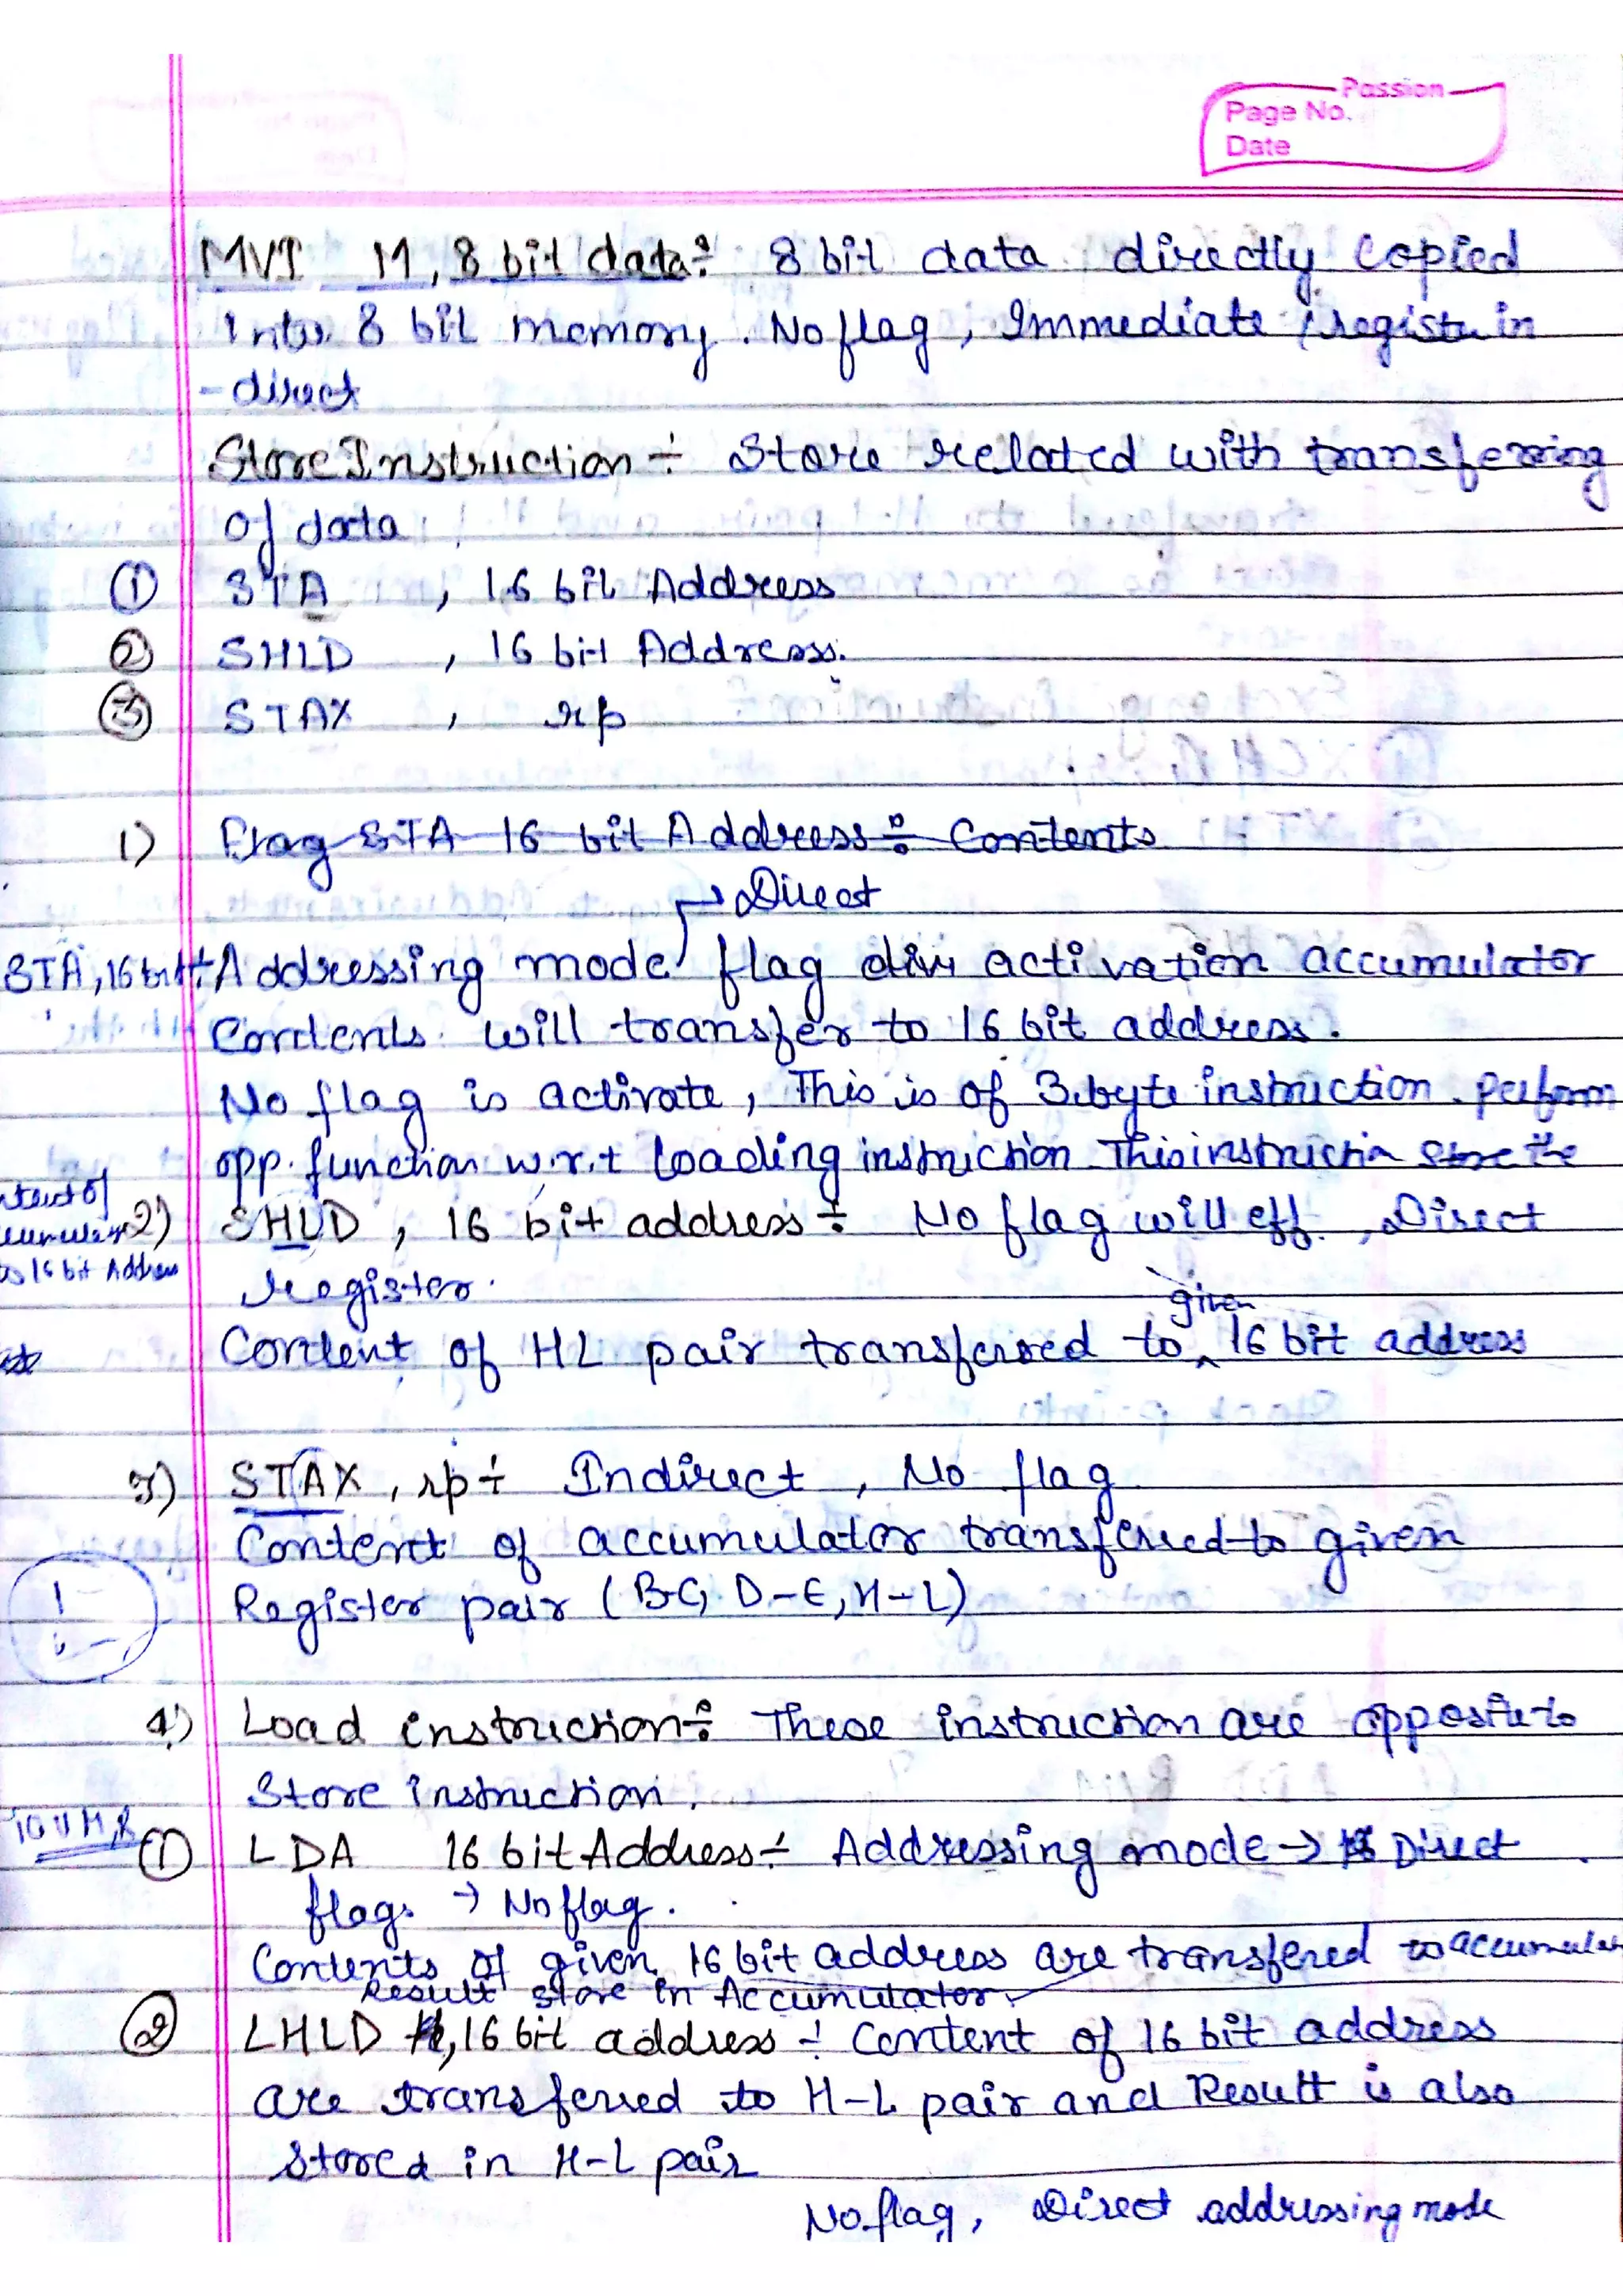 Passion
Page No.
Date
MVI M, 8 bit data÷ 8 bit data directly copied
Into 8 bit memory. No flag, Immediate, register in
-direct
Store Instruction ÷ Store related with transferring
of data
① STA , 16 bit Address
② SHLD , 16 bit Address.
③ STAX , rp
1) Flag STA 16 bit Address ÷ Contents
→ Direct
STA, 16 bit ÷ Addressing mode flag activation accumulator
Contents will transfer to 16 bit address.
No flag is activate, This is of 3 byte instruction. perform
opp. function w.r.t loading instruction This instruction Store the
2) SHLD , 16 bit address ÷ No flag will eff. , Direct
to 16 bit Address
register.
given
Content of HL pair transferred to ^ 16 bit address
3) STAX , rp ÷ Indirect , No flag
Content of accumulator transferred to given
Register pair (B-C, D-E, H-L)
4) Load instruction ÷ These instruction are opposite to
Store instruction.
① LDA 16 bit Address ÷ Addressing mode → Direct
flags → No flag.
Contents of given 16 bit address are transfered to accumulat
Result store in Accumutator
② LHLD , 16 bit address ÷ Content of 16 bit address
are transferred to H-L pair and Result is also
stored in H-L pair
No flag, Direct addressing mode